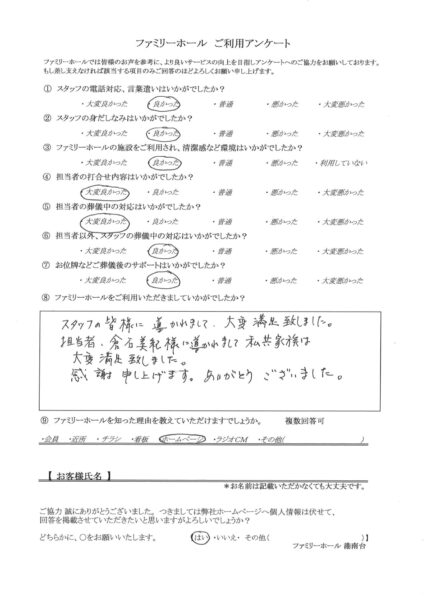 ファミリーホール　ご利用アンケート
ファミリーホールでは皆様のお声を参考に、より良いサービスの向上を目指しアンケートへのご協力をお願いしております。
もし差し支えなければ該当する項目のみご回答のほどよろしくお願い申し上げます。
① スタッフの電話対応、言葉遣いはいかがでしたか？
・大変良かった　・良かった　・普通　・悪かった　・大変悪かった
② スタッフの身だしなみはいかがでしたか？
・大変良かった　・良かった　・普通　・悪かった　・大変悪かった
③ ファミリーホールの施設をご利用され、清潔感など環境はいかがでしたか？
・大変良かった　・良かった　・普通　・悪かった　・利用していない
④ 担当者の打合せ内容はいかがでしたか？
・大変良かった　・良かった　・普通　・悪かった　・大変悪かった
⑤ 担当者の葬儀中の対応はいかがでしたか？
・大変良かった　・良かった　・普通　・悪かった　・大変悪かった
⑥ 担当者以外、スタッフの葬儀中の対応はいかがでしたか？
・大変良かった　・良かった　・普通　・悪かった　・大変悪かった
⑦ お位牌などご葬儀後のサポートはいかがでしたか？
・大変良かった　・良かった　・普通　・悪かった　・大変悪かった
⑧ ファミリーホールをご利用いただきましていかがでしたか？
スタッフの皆様に導かれまして、大変満足致しました。
担当者・倉石美紀様に導かれまして私共家族は
大変満足致しました。
感謝申し上げます。ありがとうございました。
⑨ ファミリーホールを知った理由を教えていただけますでしょうか。　複数回答可
・会員　・近所　・チラシ　・看板　・ホームページ　・ラジオCM　・その他(　)
【 お客様氏名 】
＊お名前は記載いただかなくても大丈夫です。
ご協力 誠にありがとうございました。つきましては弊社ホームページへ個人情報は伏せて、
回答を掲載させていただきたいと思いますがよろしいでしょうか？
どちらかに、〇をお願いいたします。　【はい・いいえ・その他(　)】
ファミリーホール 湘南台